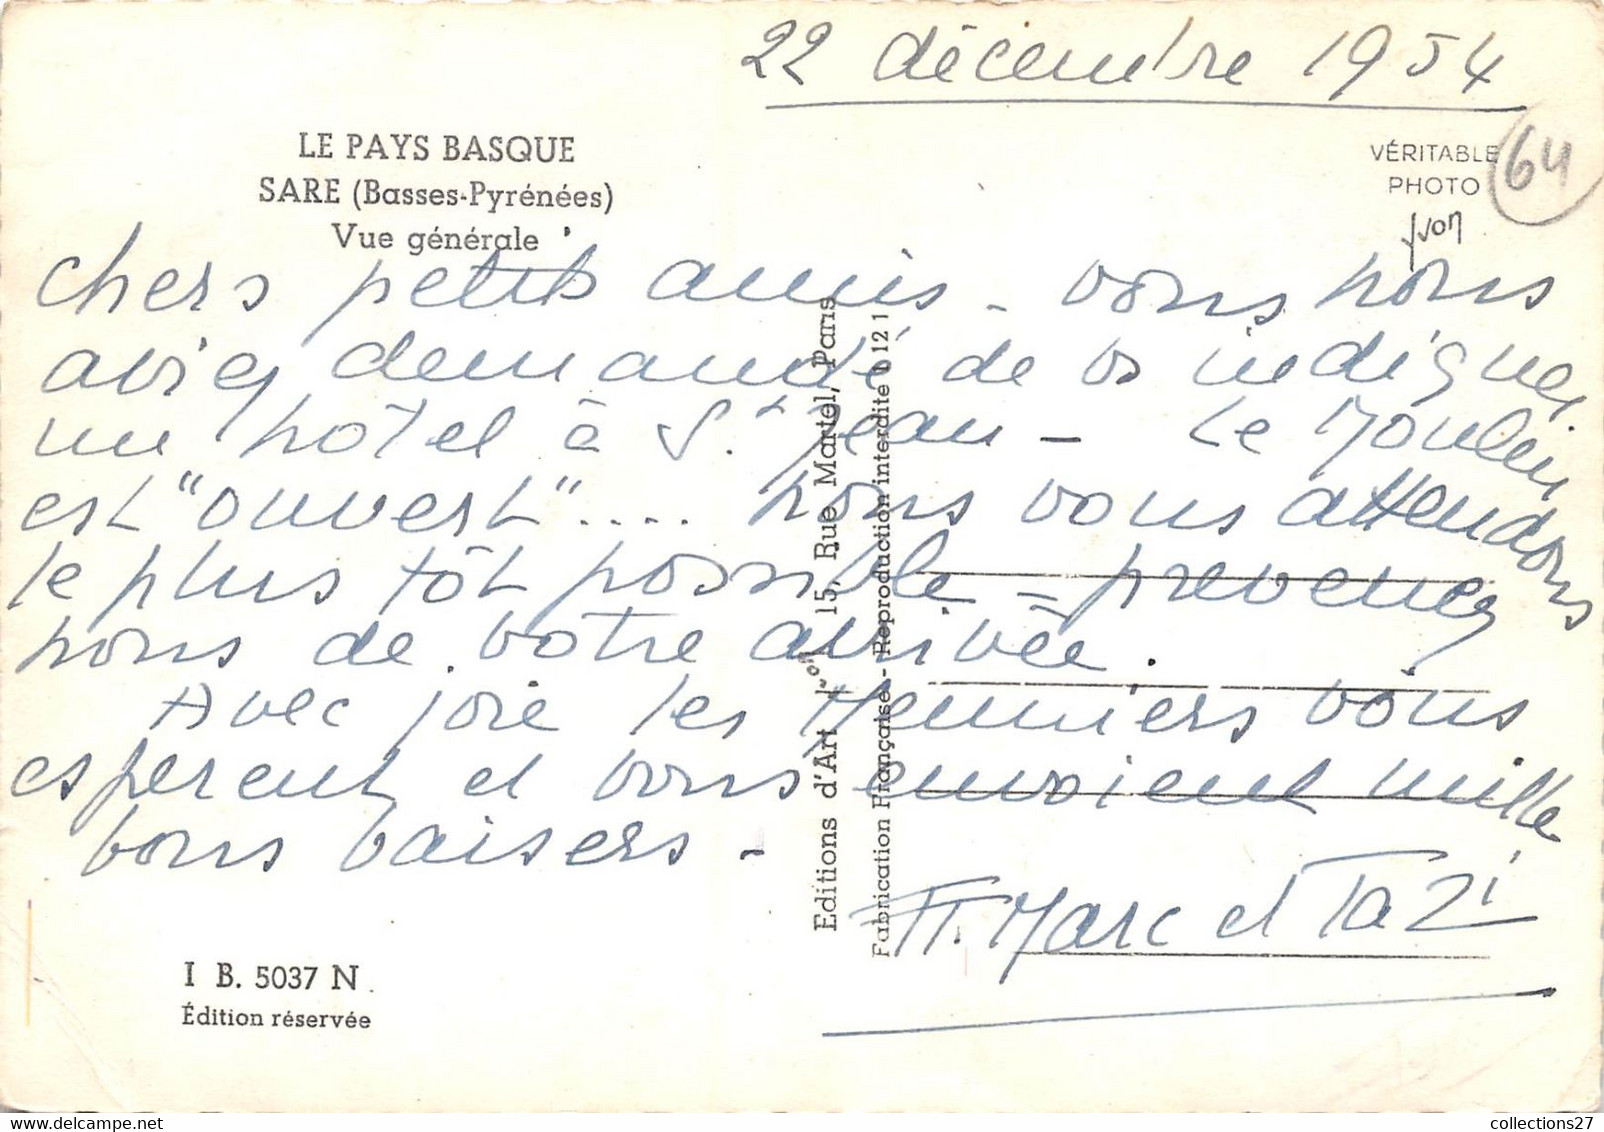 22 décembre 1954
LE PAYS BASQUE
SARE (Basses-Pyrénées)
Vue générale
VÉRITABLE
PHOTO
Yvon
64
chers petits amis - vous nous
aviez demandé de vs indiquer
un hôtel à St Jean - Le Moulin
est "ouvert".... nous vous attendons
le plus tôt possible - prevenez
nous de votre arrivée.
Avec joie les Meuniers vous
esperent et vous envoient mille
bons baisers -
Marc et Tazi
Editions d'Art Yvon 15, Rue Martel, Paris
Fabrication Française - Reproduction interdite
I B. 5037 N
Édition réservée
collections27